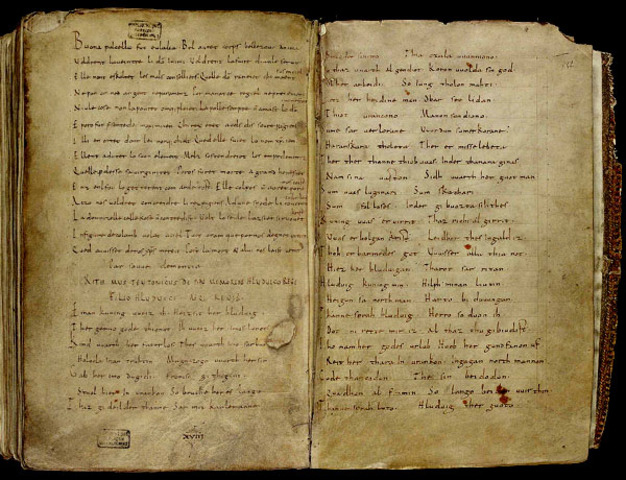 Buona pulcella fut eulalia. Bel auret corps bellezour anima
Voldrent la ueintre li dō inimi. Voldrent la faire diaule seruir
Elle non eskoltet les mals conselliers. Quelle dō raneiet chi maent
Ne por or ned argent ne paramenz. Por manatce regiel ne preiement
Niule cose non la pouret omque pleier. La polle sempre n amast lo dō
E por fut presentede maximiien. Chi rex eret a cels dis soure pagiens
Il li enortet dont lei nonq chielt. Qued elle fuiet lo nom xp̄iien
Ell ent adunet lo suon element. Melz sostendreiet les empedementz
Quelle perdesse sa uirginitet. Poros furet morte a grand honestet
Enz enl fou lo getterent com arde tost. Elle colpes non auret por
A czo nos uoldret concreidre li rex pagiens. Ad une spede li
La domnizelle celle kose non contredist. Volt lo seule lazsier
In figure de colomb uolat a ciel. Tuit oram que por nos degnet
Qued auuisset de nos xp̄s mercit. Post la mort & a lui nos laist uenir
Par souue clementia
RITHMUS TEUTONICUS DE PIAE MEMORIAE HLUDUICO REGE
FILIO HLUDUICI AEQ. REGIS
Einan kuning uueiz ih. Heizsit her hluduig
Ther gerno gode thionot. Ih uueiz her imos lonot
Kind uuarth her faterlos. Thes uuarth imo sar buoz
Holoda inan truhtin. Magaczogo uuarth her sin
Gab her imo dugidi. Fronisc githigini
Stual hier in urankon. So bruche her es lango
Thaz gideilder thanne. Sar mit karlemanne
XVIII
Thia czala uuunniono
Koron uuolda sin god
So iung tholon mahti
Obar seo lidan
Thiot urancono Manon sundiono
Uuurdun sum erkorane
Haranskara tholota Ther er misselebeta
Ther ther thanne thiob uuas Inder thanana ginas
Nam sina uaston Sidh uuarth her guot man
Sum uuas luginari Sum skachari
Sum fol loses Inder gibuozta sih thes
Kuning uuas eruirrit Thaz richi al girrit
Uuas erbolgan krist Leidhor thes ingald iz
Thoh erbarmedes got Uuisser alla thia not
Hiez her hluduigan Tharot sar ritan
Hluduig kuning min Hilph minan liutin
Heigun sa northman Harto biduuungan
Thanne sprah hluduig Herro so duon ih
Dot ni rette mir iz Al thaz thu gibiudist
Tho nam her godes urlub Huob her gundfanon uf
Reit her thara in urankon Ingagan northmannon
Gode thancodun The sin beidodun
Quadhun al fro min So lango beidon uuir thin
Thanne sprah luto Hluduig ther guoto